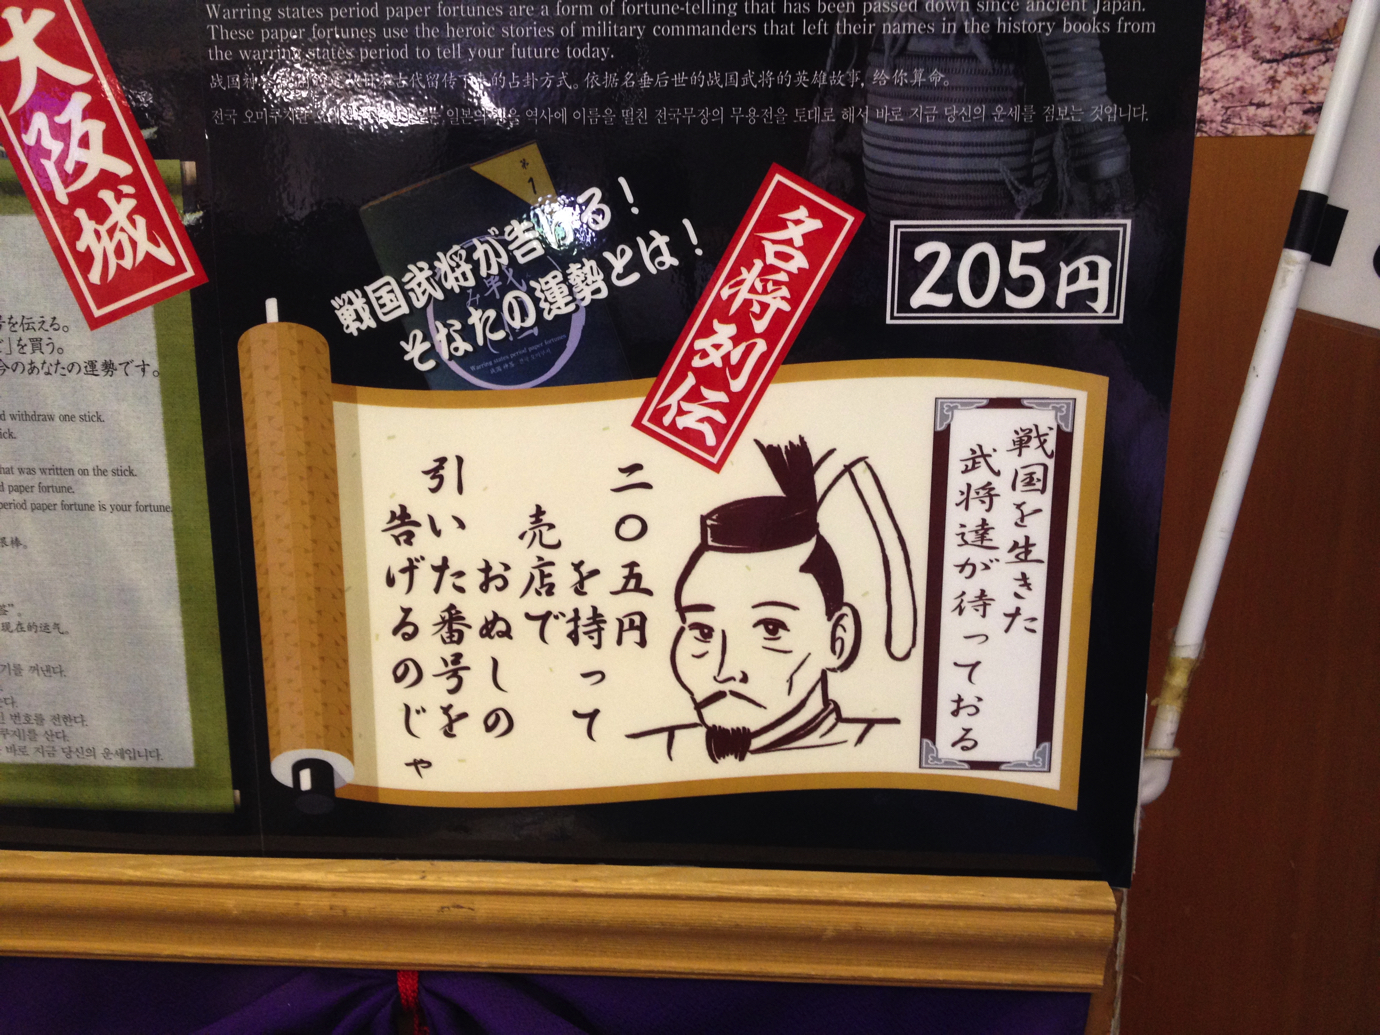 Warring states period paper fortunes are a form of fortune-telling that has been passed down since ancient Japan.
These paper fortunes use the heroic stories of military commanders that left their names in the history books from
the warring states period to tell your future today.
战国神 古代留传 的占卦方式。依据名垂后世的战国武将的英雄故事, 给你算命。
전국 일본의 역사에 이름을 떨친 전국무장의 무용전을 토대로 해서 바로 지금 당신의 운세를 점보는 것입니다.
大阪城
第1
戦国武将が告げる!
そなたの運勢とは!
Warring states period paper fortunes
名将列伝
205円
戦国を生きた
武将達が待っておる
二〇五円
を持って
売店で
おぬしの
引いた番号を
告げるのじゃ
号を伝える。
」を買う。
今のあなたの運勢です。
withdraw one stick.
stick.
that was written on the stick.
paper fortune.
period paper fortune is your fortune
现在的运气。
기를 꺼낸다.
번호를 전한다.
를 산다.
바로 지금 당신의 운세입니다.